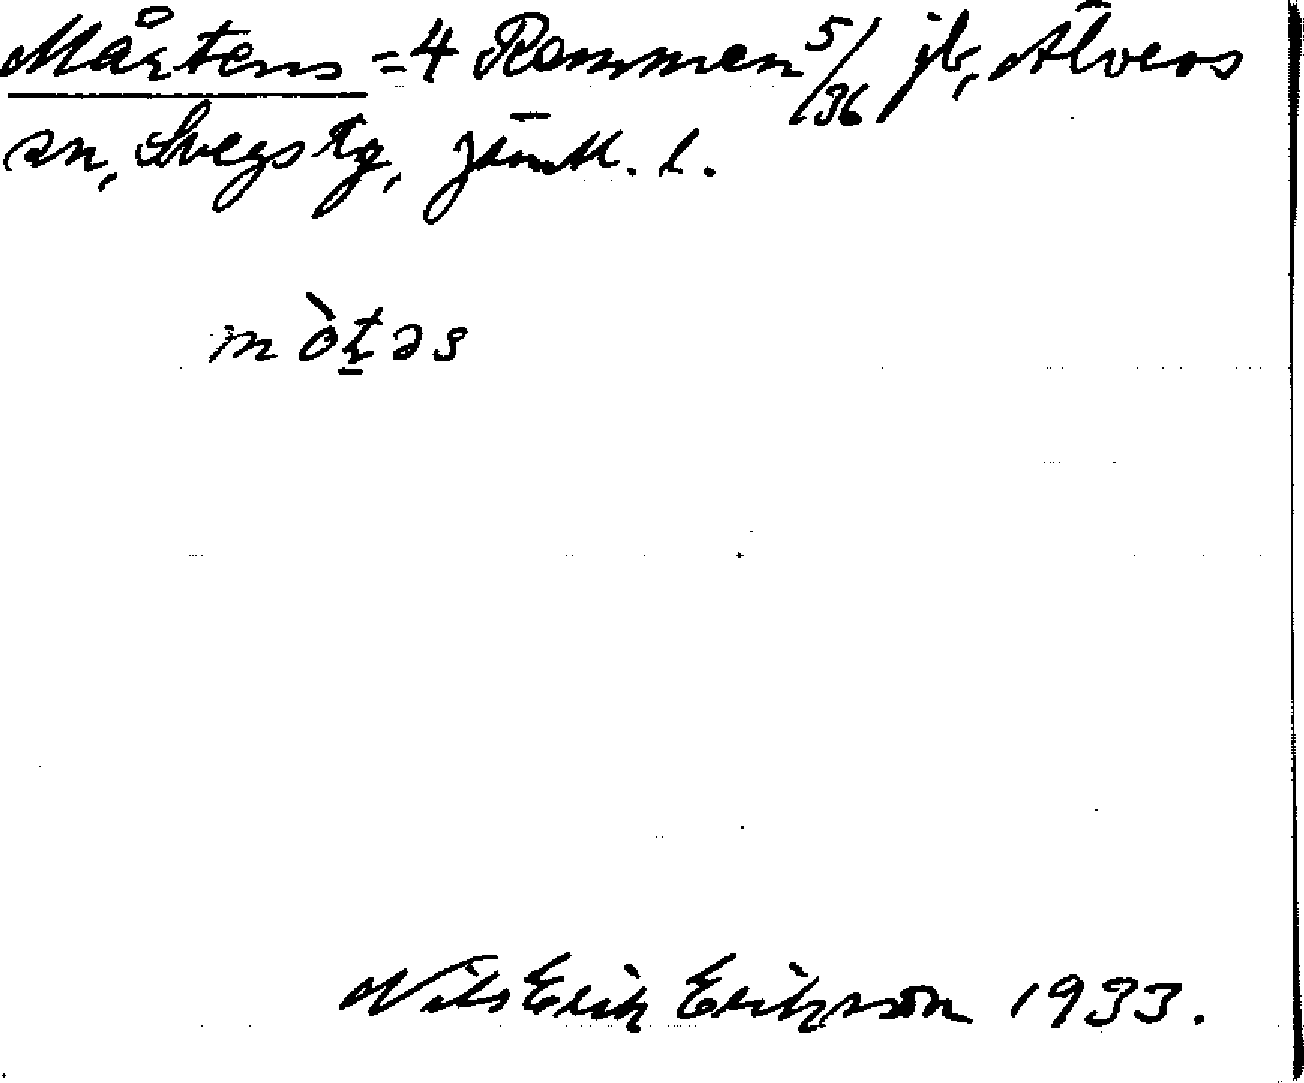 Mårtens = 4 Remmen 5/36 jb, Älvros
sn, Svegs tg, Jämtl. l.
mòt̠əs
Nils Erik Erikson 1933.